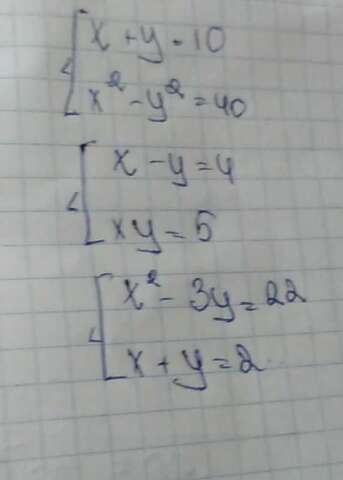 x + y = 10
x² - y² = 40
x - y = 4
xy = 5
x² - 3y = 22
x + y = 2